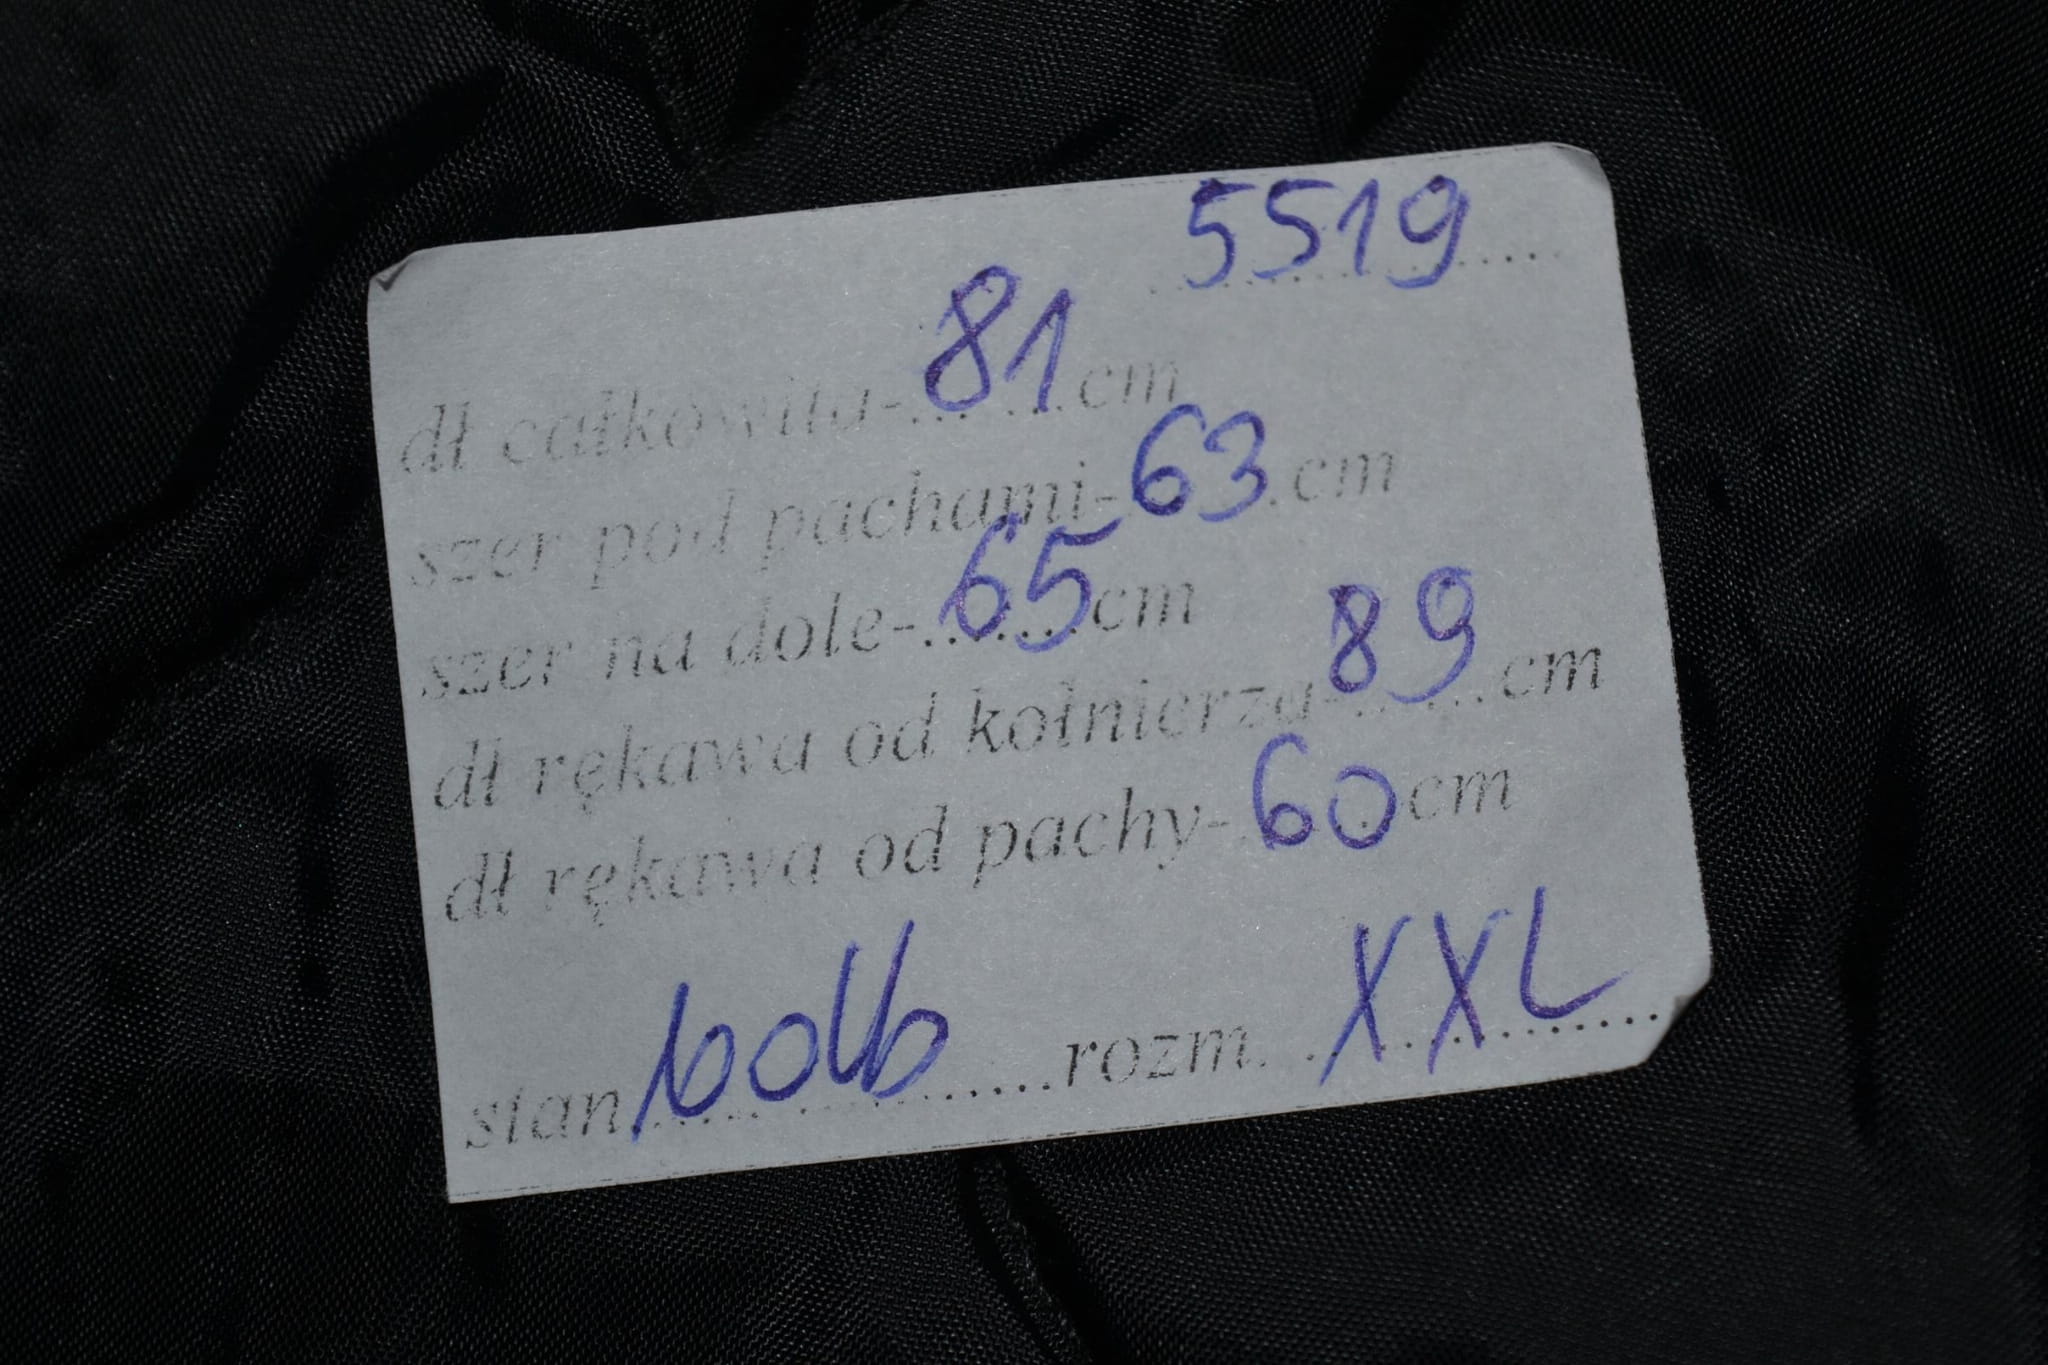 5519
dł całkowita-81cm
szer pod pachami-63.cm
szer na dole-65cm
dł rękawa od kołnierza-89cm
dł rękawa od pachy-60cm
stan rozm. XXL